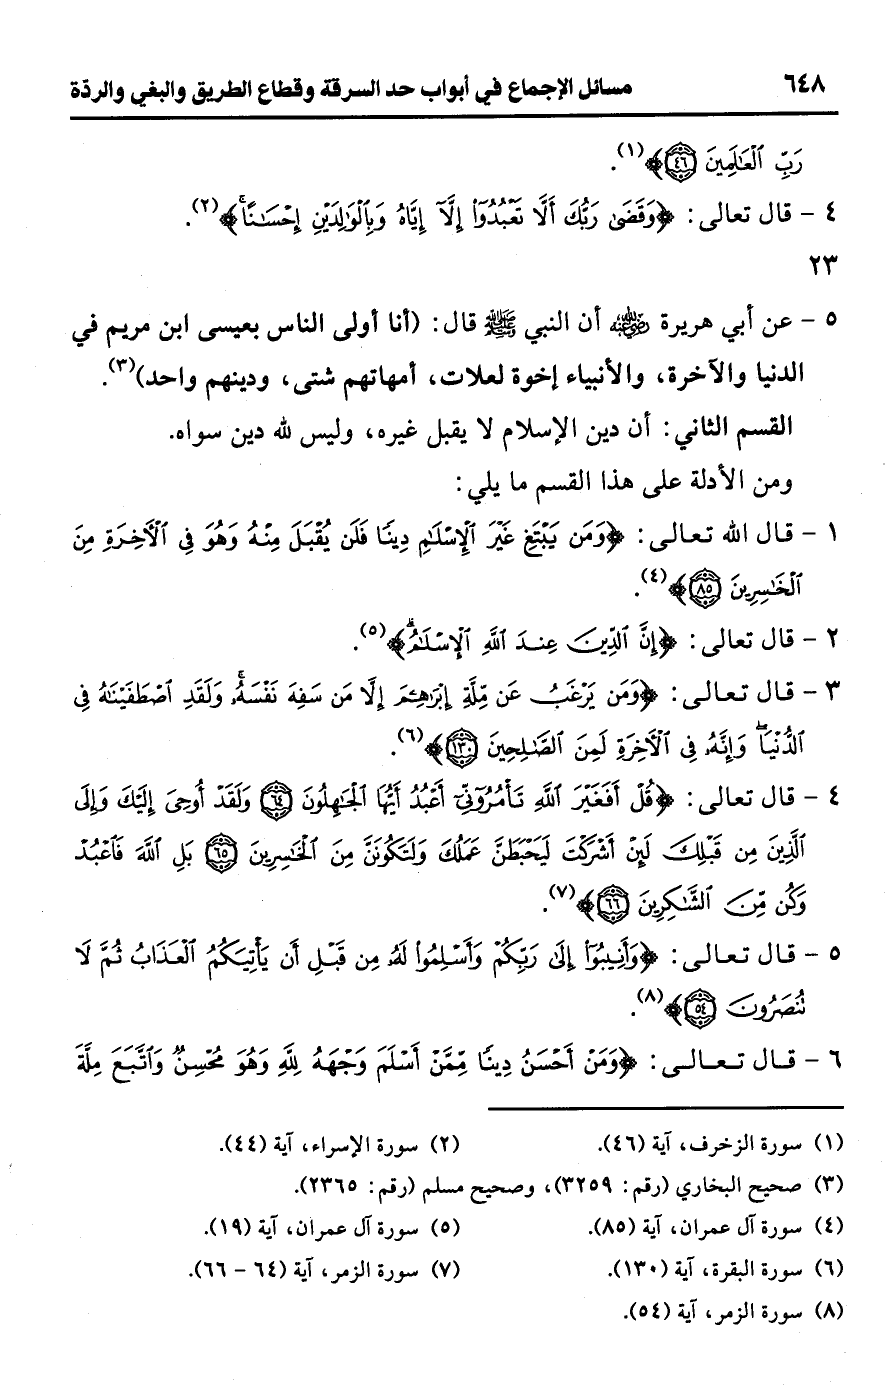 ٦٤٨ مسائل الإجماع في أبواب حد السرقة وقطاع الطريق والبغي والردّة
رَبِّ ٱلْعَـٰلَمِينَ ٤٦﴾(١).
٤ - قال تعالى: ﴿وَقَضَىٰ رَبُّكَ أَلَّا تَعْبُدُوٓا۟ إِلَّآ إِيَّاهُ وَبِٱلْوَٰلِدَيْنِ إِحْسَـٰنًا ۚ﴾(٢).
٢٣
٥ - عن أبي هريرة رضي الله عنه أن النبي ﷺ قال: (أنا أولى الناس بعيسى ابن مريم في
الدنيا والآخرة، والأنبياء إخوة لعلات، أمهاتهم شتى، ودينهم واحد)(٣).
القسم الثاني: أن دين الإسلام لا يقبل غيره، وليس لله دين سواه.
ومن الأدلة على هذا القسم ما يلي:
١ - قال الله تعالى: ﴿وَمَن يَبْتَغِ غَيْرَ ٱلْإِسْلَـٰمِ دِينًا فَلَن يُقْبَلَ مِنْهُ وَهُوَ فِى ٱلْـَٔاخِرَةِ مِنَ
ٱلْخَـٰسِرِينَ ٨٥﴾(٤).
٢ - قال تعالى: ﴿إِنَّ ٱلدِّينَ عِندَ ٱللَّهِ ٱلْإِسْلَـٰمُ ۗ﴾(٥).
٣ - قال تعالى: ﴿وَمَن يَرْغَبُ عَن مِّلَّةِ إِبْرَٰهِـۧمَ إِلَّا مَن سَفِهَ نَفْسَهُۥ ۚ وَلَقَدِ ٱصْطَفَيْنَـٰهُ فِى
ٱلدُّنْيَا ۖ وَإِنَّهُۥ فِى ٱلْـَٔاخِرَةِ لَمِنَ ٱلصَّـٰلِحِينَ ١٣٠﴾(٦).
٤ - قال تعالى: ﴿قُلْ أَفَغَيْرَ ٱللَّهِ تَأْمُرُوٓنِّىٓ أَعْبُدُ أَيُّهَا ٱلْجَـٰهِلُونَ ٦٤ وَلَقَدْ أُوحِىَ إِلَيْكَ وَإِلَى
ٱلَّذِينَ مِن قَبْلِكَ لَئِنْ أَشْرَكْتَ لَيَحْبَطَنَّ عَمَلُكَ وَلَتَكُونَنَّ مِنَ ٱلْخَـٰسِرِينَ ٦٥ بَلِ ٱللَّهَ فَٱعْبُدْ
وَكُن مِّنَ ٱلشَّـٰكِرِينَ ٦٦﴾(٧).
٥ - قال تعالى: ﴿وَأَنِيبُوٓا۟ إِلَىٰ رَبِّكُمْ وَأَسْلِمُوا۟ لَهُۥ مِن قَبْلِ أَن يَأْتِيَكُمُ ٱلْعَذَابُ ثُمَّ لَا
تُنصَرُونَ ٥٤﴾(٨).
٦ - قال تعالى: ﴿وَمَنْ أَحْسَنُ دِينًا مِّمَّنْ أَسْلَمَ وَجْهَهُۥ لِلَّهِ وَهُوَ مُحْسِنٌ وَٱتَّبَعَ مِلَّةَ
(١) سورة الزخرف، آية (٤٦). (٢) سورة الإسراء، آية (٤٤).
(٣) صحيح البخاري (رقم: ٣٢٥٩)، وصحيح مسلم (رقم: ٢٣٦٥).
(٤) سورة آل عمران، آية (٨٥). (٥) سورة آل عمران، آية (١٩).
(٦) سورة البقرة، آية (١٣٠). (٧) سورة الزمر، آية (٦٤ - ٦٦).
(٨) سورة الزمر، آية (٥٤).